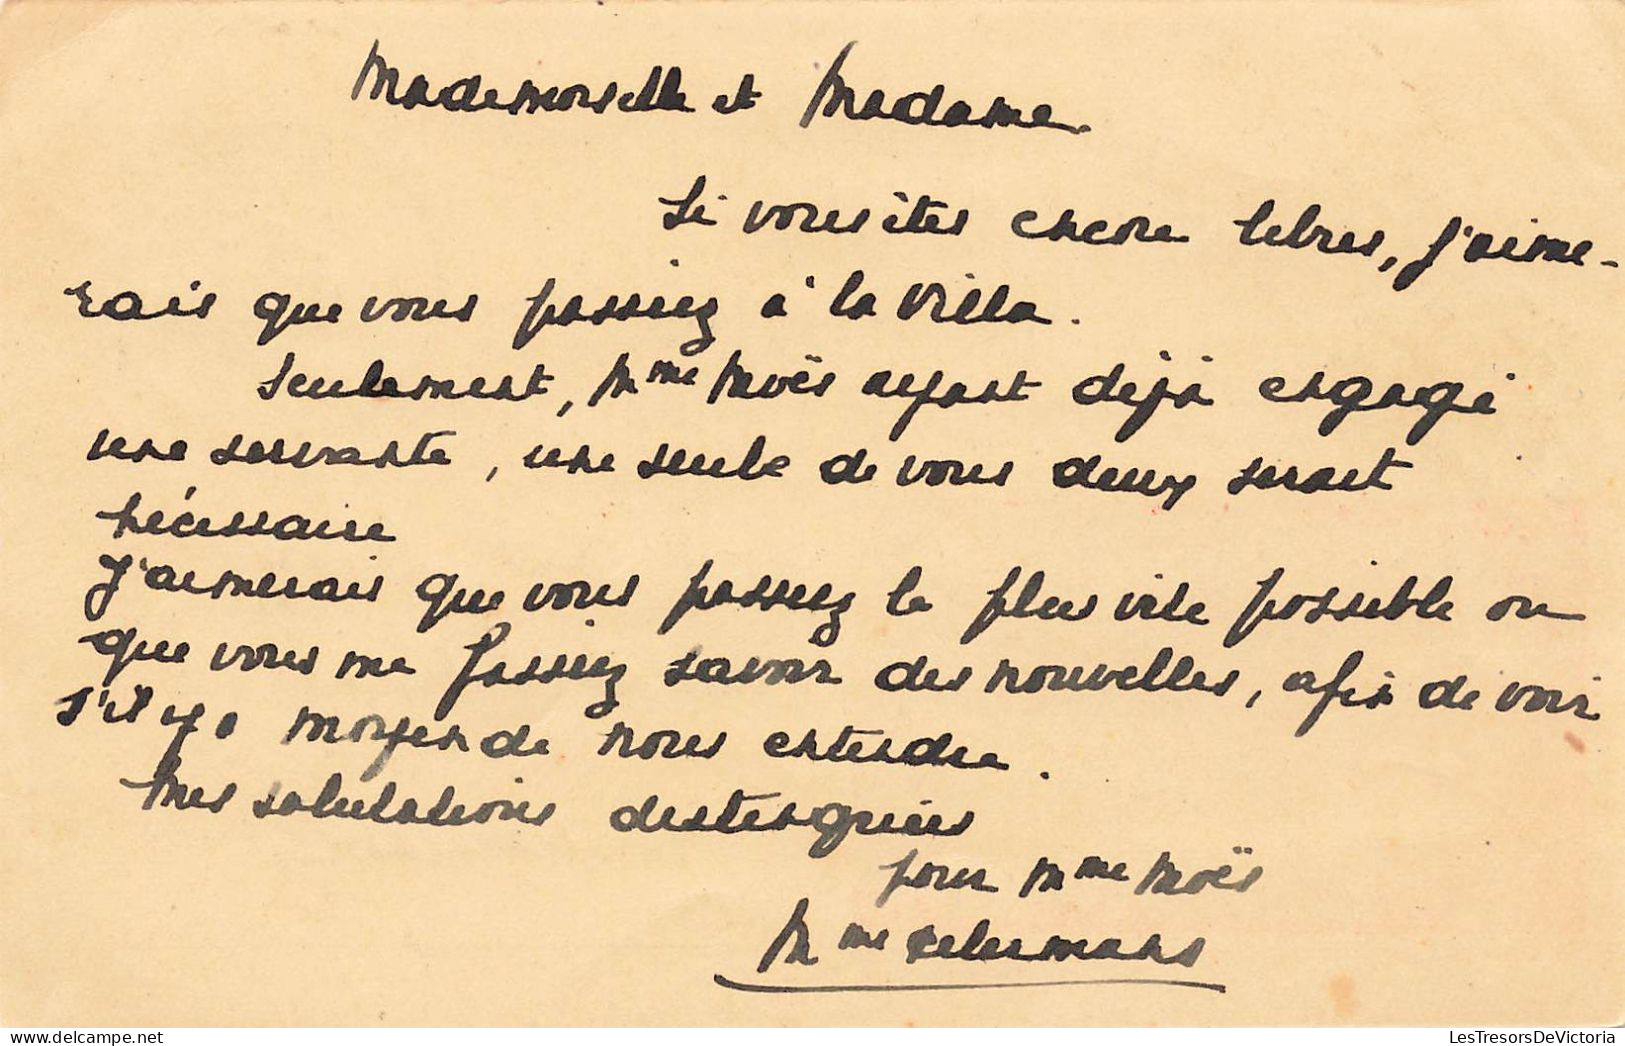 Mademoiselle et Madame
Si vous êtes encore libres, j'aime-
rais que vous passiez à la Villa.
Seulement, Mme Moës ayant déjà engagé
une servante, une seule de vous deux serait
nécessaire
J'aimerais que vous passiez le plus vite possible ou
que vous me fassiez savoir des nouvelles, afin de voir
s'il y a moyen de nous entendre.
Mes salutations distinguées
pour Mme Moës
Mme
LesTresorsDeVictoria